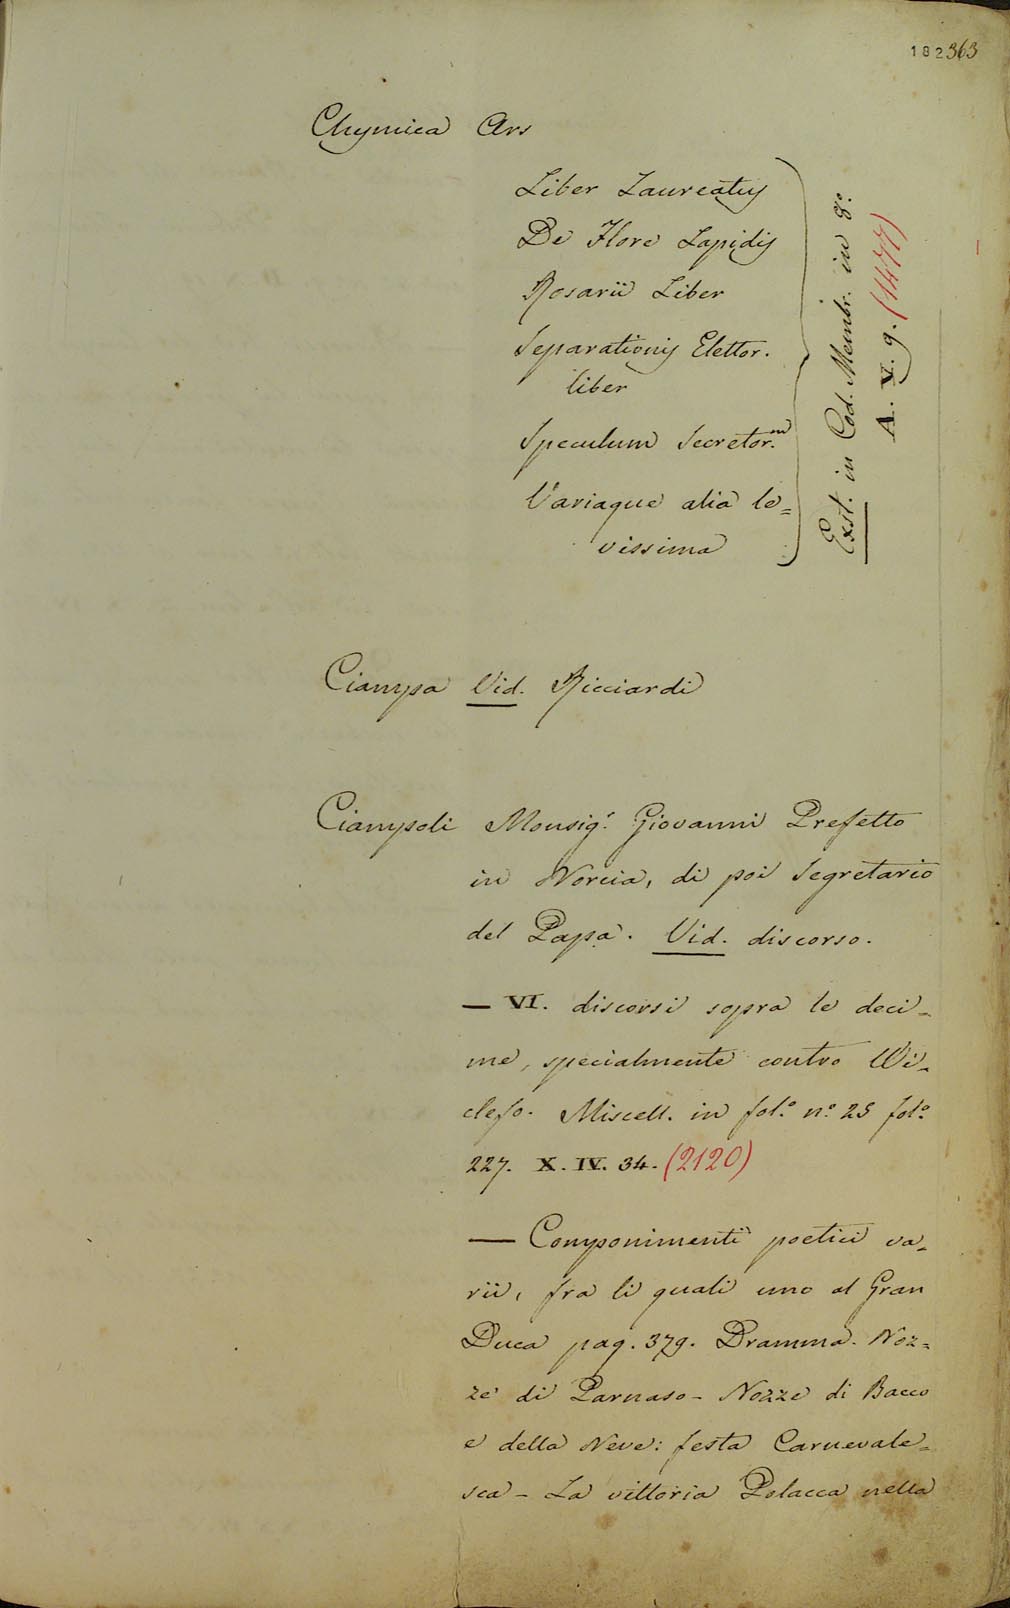 182363
Chymica Ars
Liber Laureatus
De Flore Lapidis
Rosarii Liber
Separationis Elettor.
liber
Speculum Secretor.m
Variaque alia le=
vissima
Exst. in Cod. Membr. in 8.o
A. V. 9. (1477)
Ciampa Vid. Ricciardi
Ciampoli Monsig.r Giovanni Prefetto
in Norcia, di poi Segretario
del Papa. Vid. discorso.
— VI. discorsi sopra le deci=
me, specialmente contro Wi=
clefo. Miscell. in fol.o n.o 25 fol.o
227. X. IV. 34. (2120)
— Componimenti poetici va=
rii, fra li quali uno al Gran
Duca pag. 379. Dramma. Noz=
ze di Parnaso - Nozze di Bacco
e della Neve: festa Carnevale=
sca - La vittoria Polacca nella